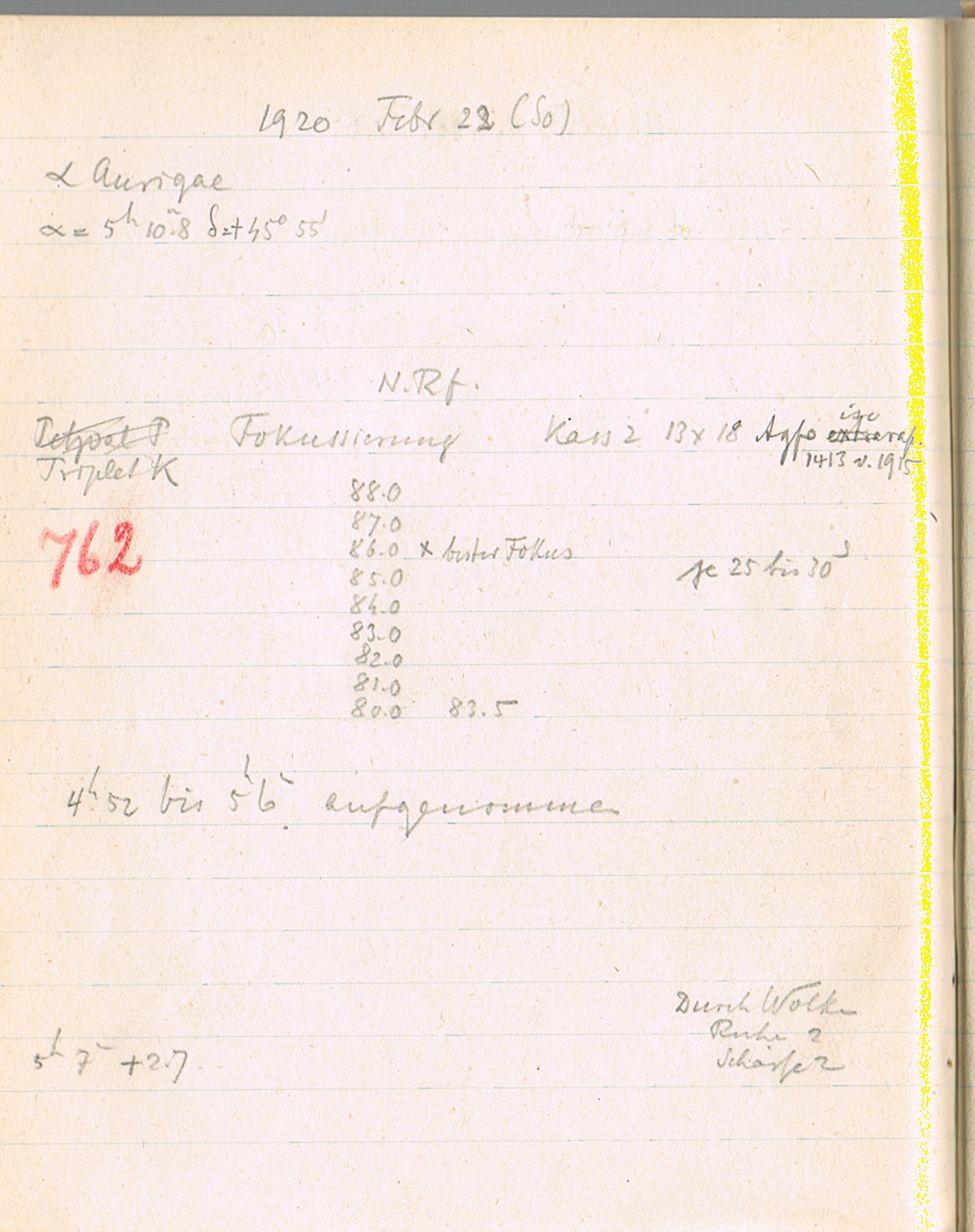 1920 Febr 22 (So)
α Aurigae
α = 5ʰ 10ᵐ.8 δ=+45° 55'
N.Rf.
Petzval P Fokussierung Kass 2 13x18 Agfa extrarap.
iso
Triplet K
1413 v. 1915
88.0
87.0
762
86.0 x bester Fokus
je 25 bis 30ˢ
85.0
84.0
83.0
82.0
81.0
80.0 83.5
4ʰ 52 bis 5ʰ 6ᵐ aufgenommen
Durch Wolken
Ruhe 2
5ʰ 7ᵐ +2.7
Schärfe 2